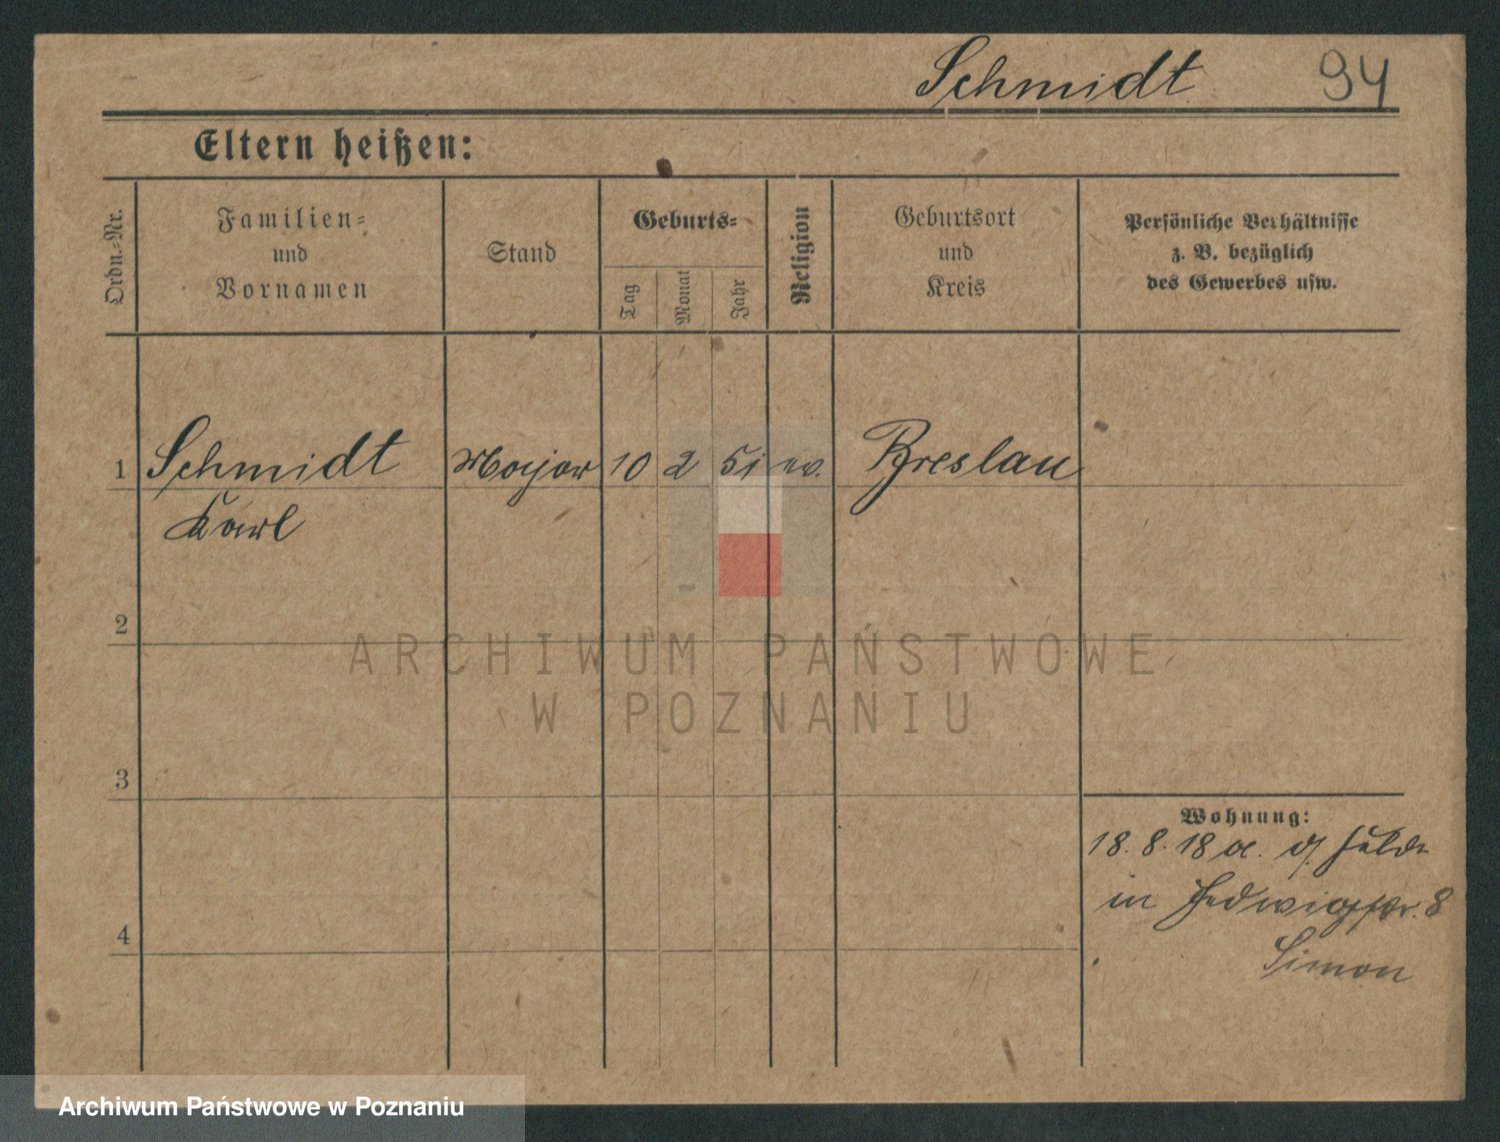 Schmidt 94
Eltern heißen:
Ordn.-Nr.
Familien-
und
Vornamen
Stand
Geburts-
Tag
Monat
Jahr
Religion
Geburtsort
und
Kreis
Persönliche Verhältnisse
z. B. bezüglich
des Gewerbes usw.
1 Schmidt Major 10 2 51 ev. Breslau
Karl
2
ARCHIWUM PAŃSTWOWE
W POZNANIU
3
Wohnung:
18. 8. 18 a. d. Felde
in Hedwigstr. 8
4
Simon
Archiwum Państwowe w Poznaniu